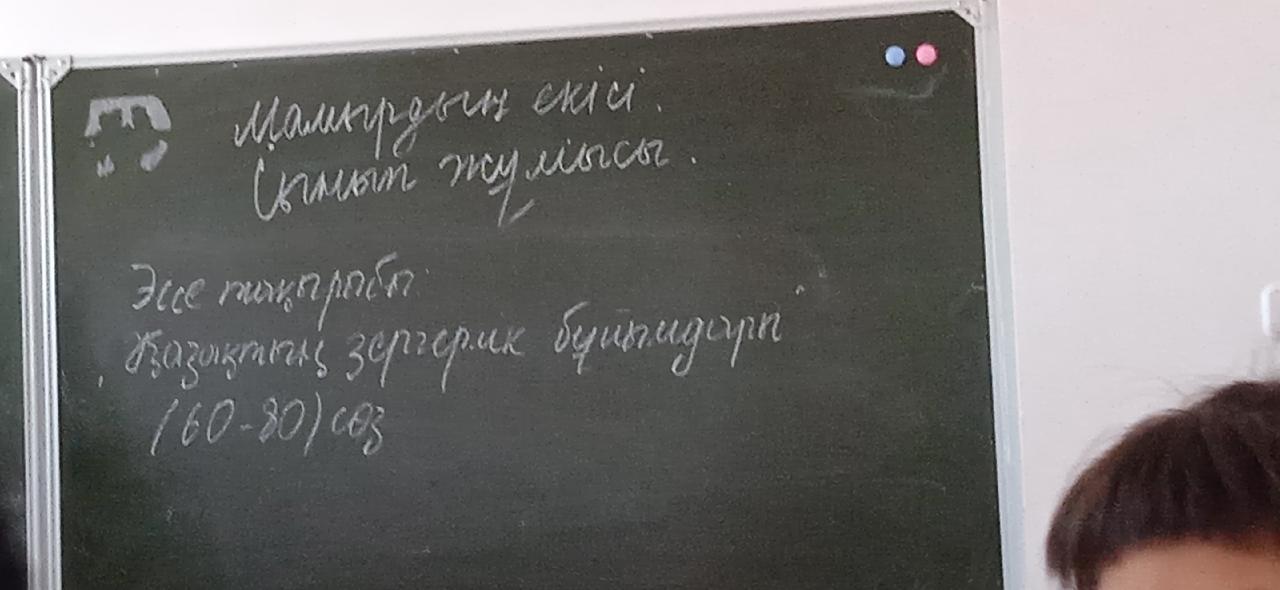 Мамырдың екісі.
Сынып жұмысы.
Эссе тақырыбы:
Қазақтың зергерлік бұйымдары
(60-80) сөз